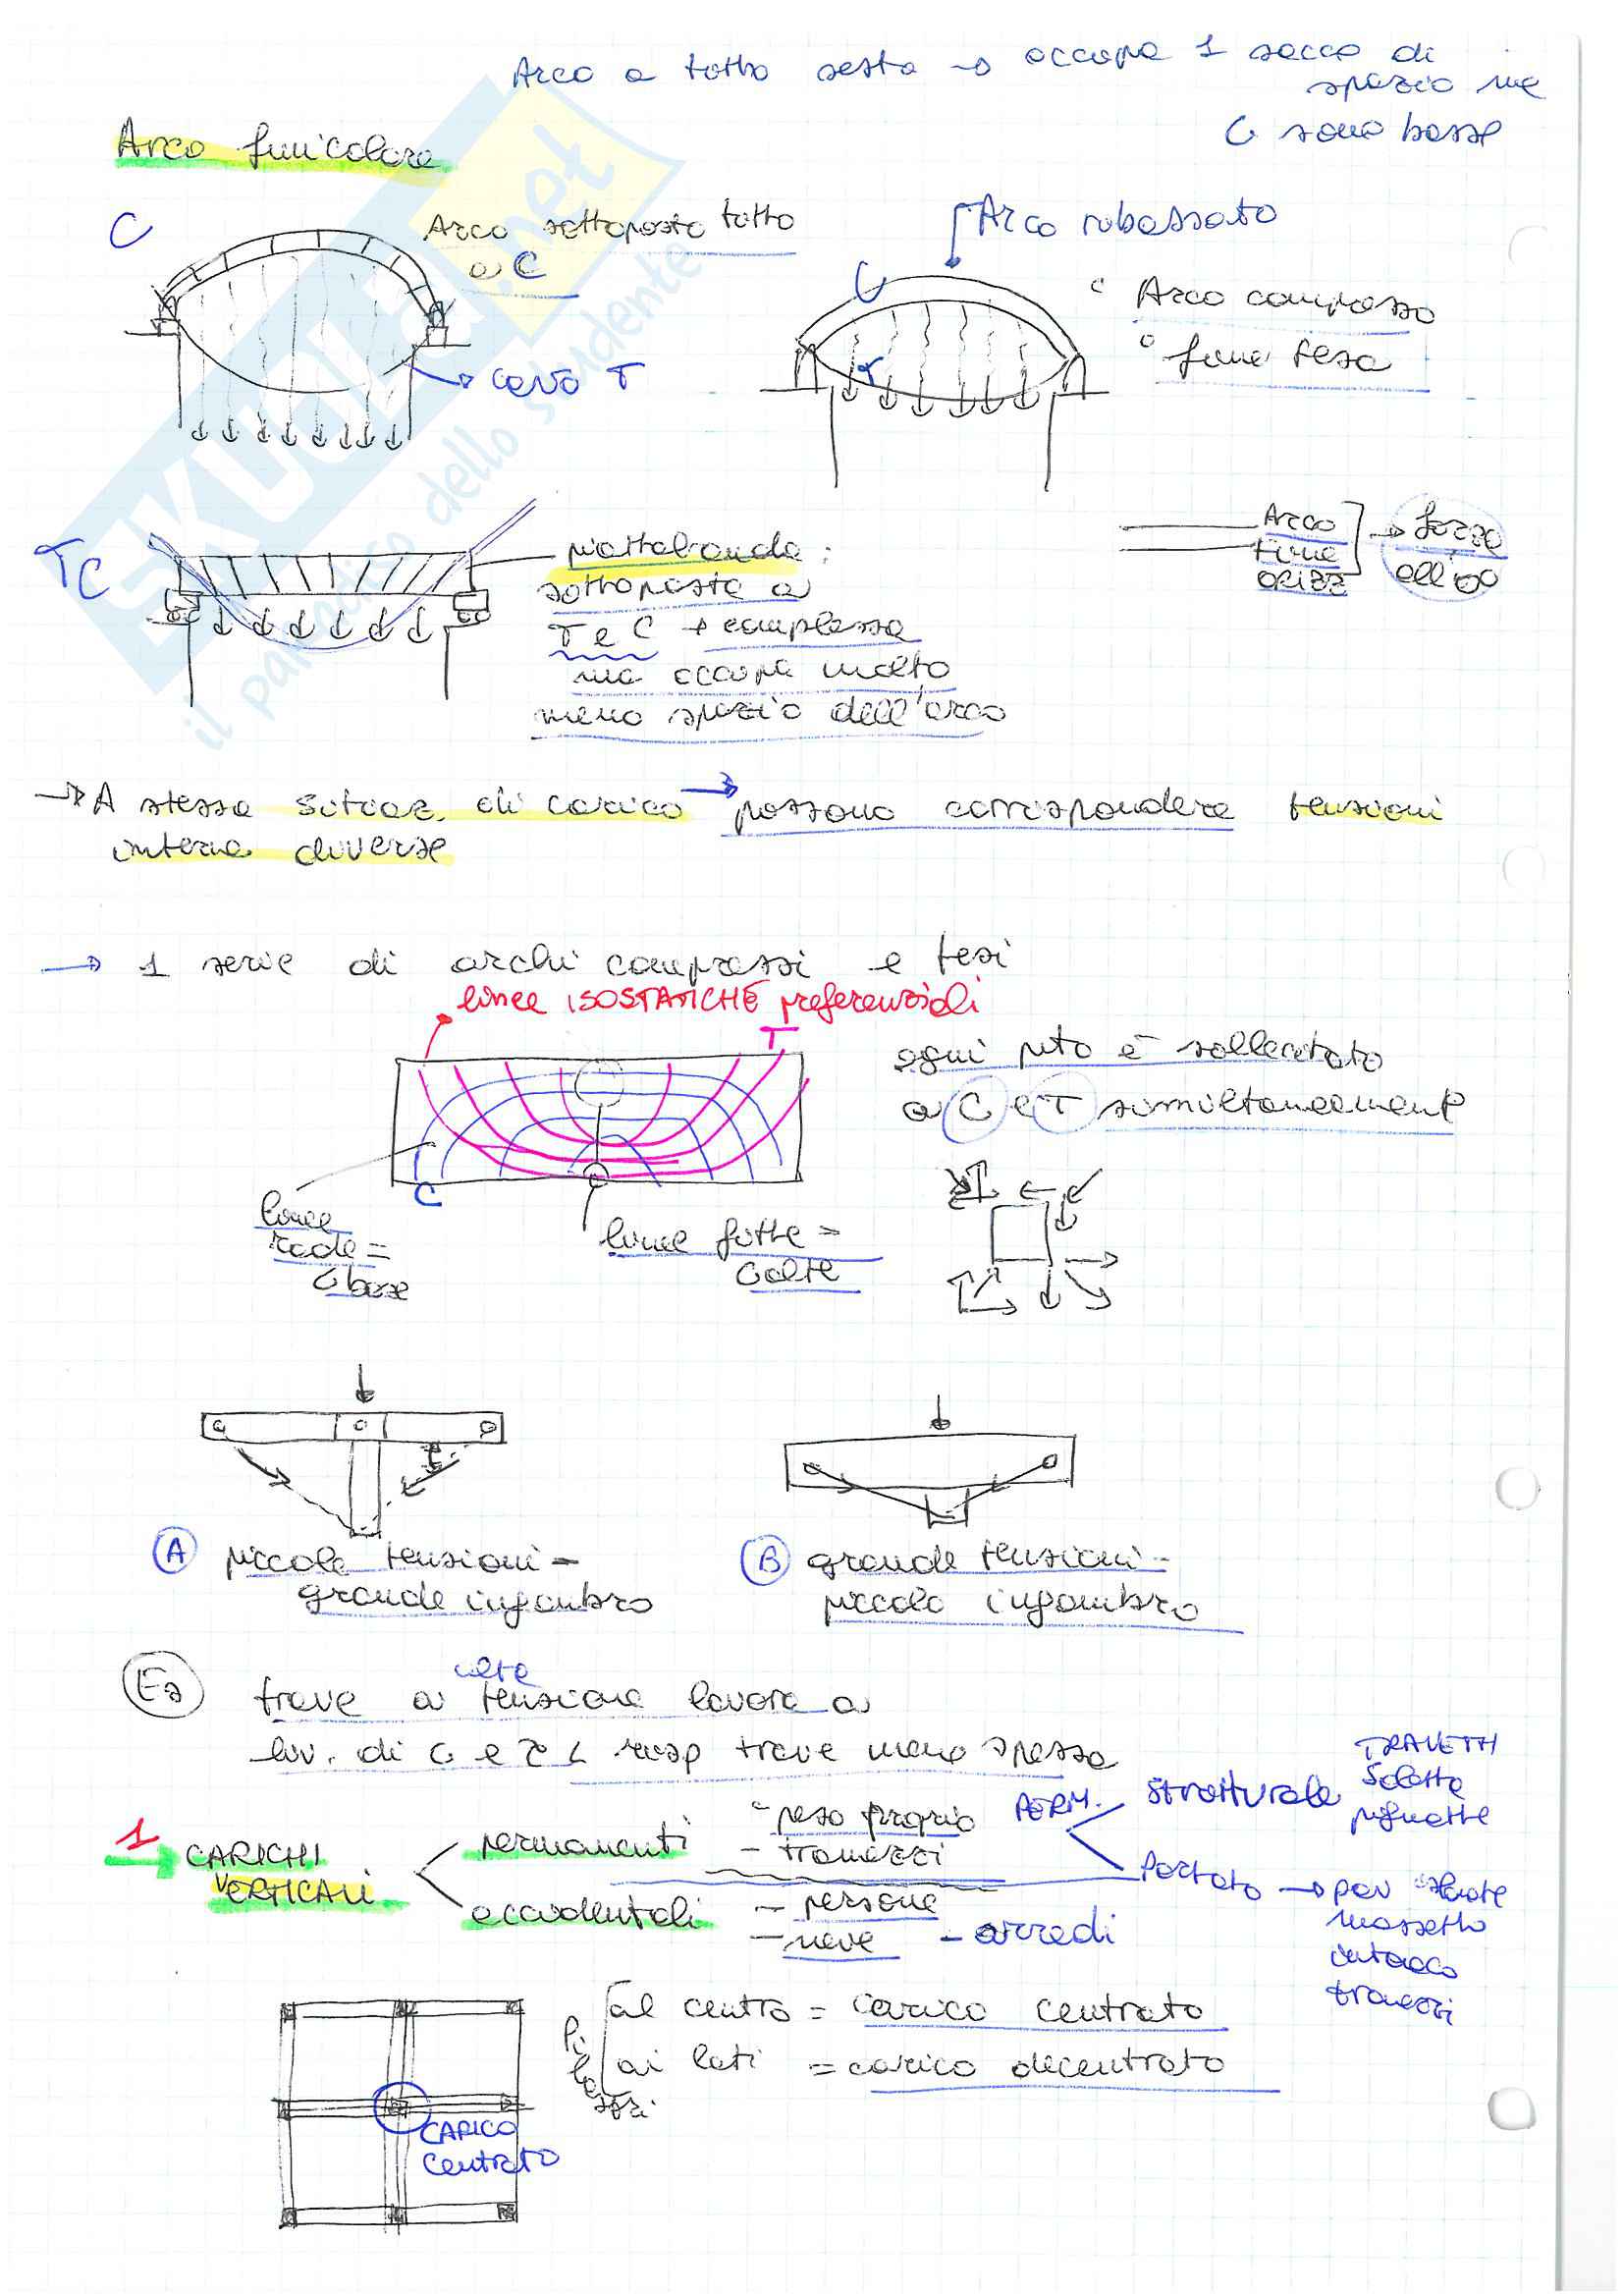 Arco a tutto sesto → occupa 1 sacco di
spazio ma
σ sono basse
Arco funicolare
C
Arco sottoposto tutto
a C
cavo T
Arco ribassato
C
T
° Arco compresso
° fune tesa
T C
piattabanda:
sottoposta a
T e C + complessa
ma occupa molto
meno spazio dell'arco
Arco
fune
orizz
→ forze
all'∞
SKUOLA.net
il paradiso dello studente
→ A stessa situaz. di carico → possono corrispondere tensioni
interne diverse
→ 1 serie di archi compressi e tesi
linee ISOSTATICHE preferenziali
T
C
ogni pto è sollecitato
a C e T simultaneament
linee
rade =
σ basse
linee fitte =
σ alte
A piccole tensioni -
grande ingombro
B grande tensioni -
piccolo ingombro
Es trave a alta tensione lavora a
liv. di σ e τ < risp trave meno spessa
1
CARICHI
VERTICALI
permanenti
° peso proprio
- tramezzi
accidentali
- persone
- neve
- arredi
PERM.
Strutturale
TRAVETTI
Soletta
pignatte
Portato →
massetto
intonaco
tramezzi
Pilastri
al centro = carico centrato
ai lati = carico decentrato
CARICO
Centrato